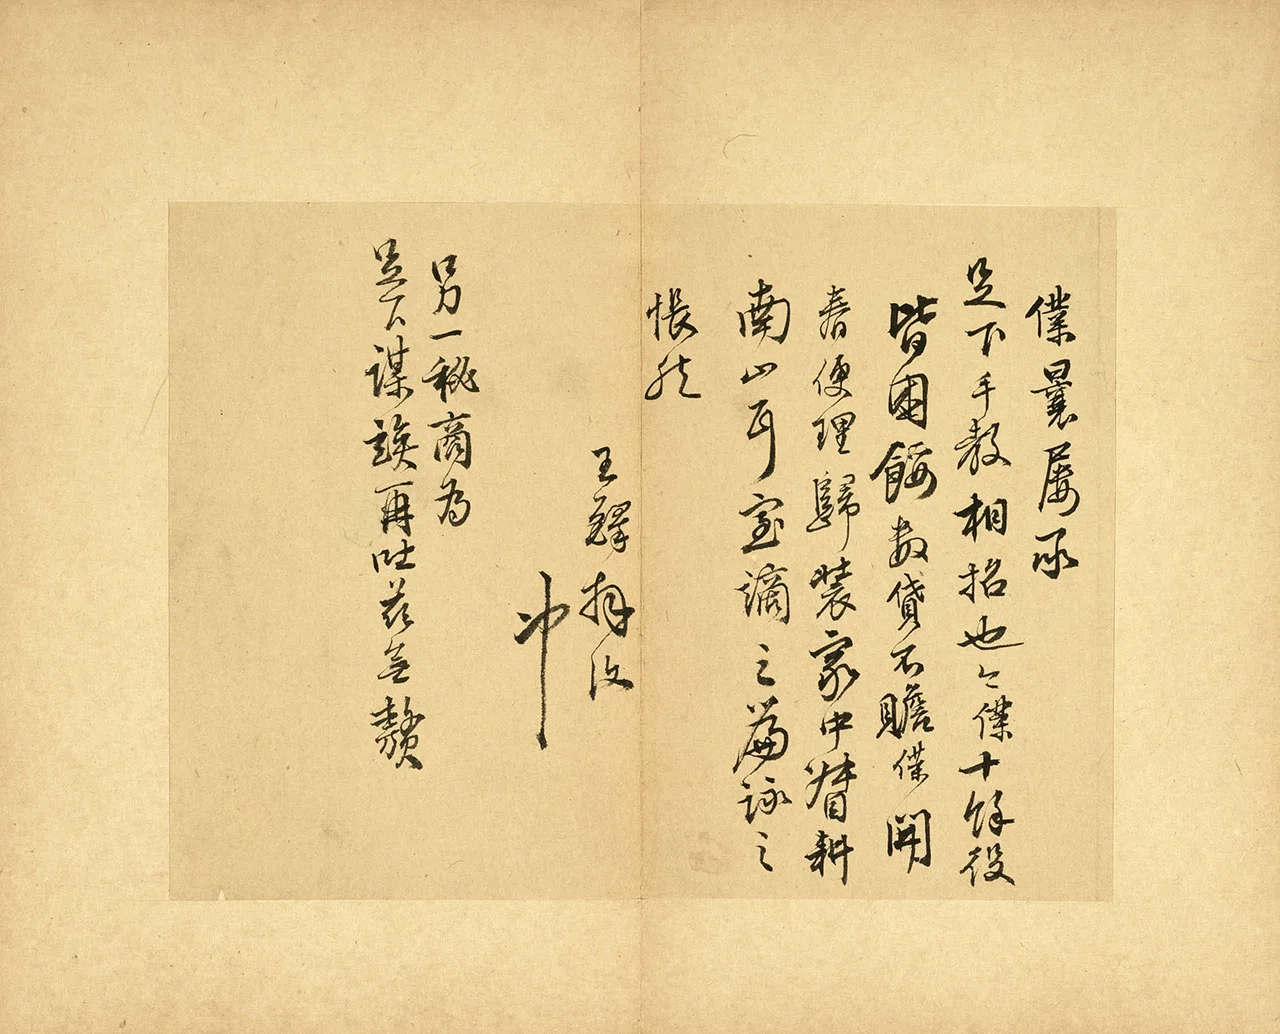 僕曩屢承
足下手教相招也今僕十餘役
皆困餒數貸不贍僕開
春便理歸裝家中督耕
南山耳室謫之篇詠之
悵然
王鐸拜
沖
另一秘商為
足下謀族再吐茲無贅